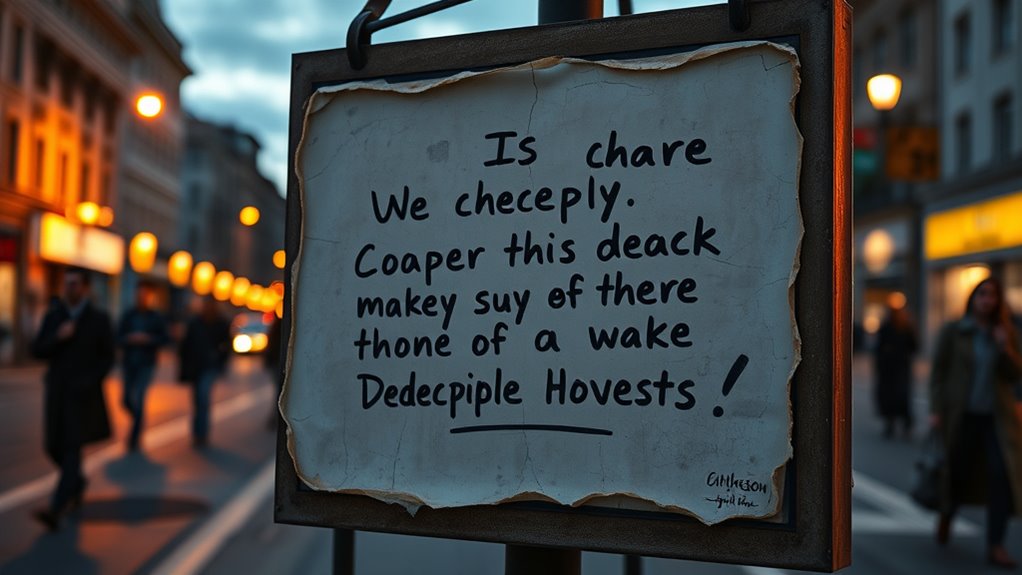 Is chare
We checeply.
Coaper this deack
makey suy of there
thone of a wake
Dedecpiple Hovests!